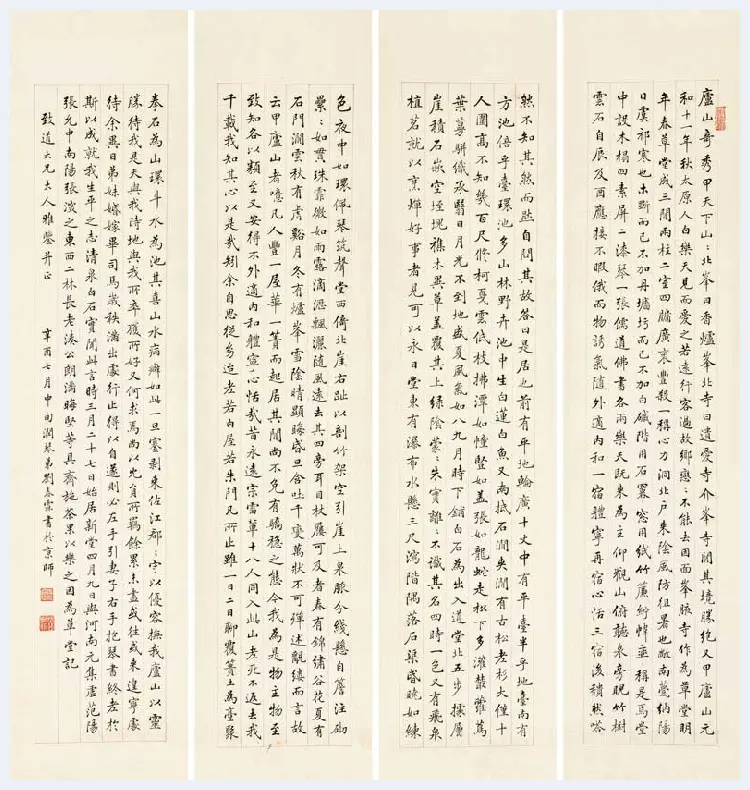 廬山奇秀甲天下山々北峯曰香爐峯北寺曰遺愛寺介峯寺間其境勝絕又甲廬山元
和十一年秋太原人白樂天見而愛之若遠行客過故鄉戀々不能去因面峯腋寺作為草堂明
年春草堂成三間兩柱二室四牖廣袤豐殺一稱心力洞北戶來陰風防徂暑也敞南甍納陽
日虞祁寒也木斲而已不加丹墻圬而已不加白磩階用石羃窓用紙竹簾紵幃率稱是焉堂
中設木榻四素屏二漆琴一張儒道佛書各兩樂天既來為主仰觀山俯聽泉旁睨竹樹
雲石自辰及酉應接不暇俄而物誘氣隨外適內和一宿體寧再宿心恬三宿後頹然嗒
然不知其然而然自問其故答曰是居也前有平地輪廣十丈中有平臺半平地臺南有
方池倍乎臺環池多山林野卉池中生白蓮白魚又南抵石澗夾澗有古松老杉大僅十
人圍高不知幾百尺修柯戛雲低枝拂潭如幢豎如蓋張如龍蛇走松下多灌叢蘿蔦
葉蔓駢織承翳日月光不到地盛夏風氣如八九月時下鋪白石為出入道堂北五步據層
崖積石嵌空垤堄雜木異草蓋覆其上綠陰蒙々朱實離々不識其名四時一色又有飛泉
植茗就以烹燀好事者見可以永日堂東有瀑布水懸三尺瀉階隅落石渠昏曉如練
色夜中如環佩琴筑聲堂西倚北崖右趾以剖竹架空引崖上泉脈分綫懸自簷注砌
纍々如貫珠霏微如雨露滴瀝飄灑隨風遠去其四旁耳目杖屨可及者春有錦繡谷花夏有
石門澗雲秋有虎谿月冬有爐峯雪陰晴顯晦昏旦含吐千變萬狀不可殫述覼縷而言故
云甲廬山者噫凡人豐一屋華一簣而起居其間尚不免有驕穩之態今我為是物主物至
致知各以類至又安得不外適內和體寧心恬哉昔永遠宗雷輩十八人同入此山老死不返去我
千載我知其心以是哉矧余自思從幼迨老若白屋若朱門凡所止雖一日二日聊覆簣土為臺聚
拳石為山環斗水為池其喜山水病癖如此一旦蹇剥来佐江郡々守以優容撫我廬山以靈
勝待我是天與我時地與我所卒獲所好又何求焉尚以冗員所羈餘累未盡或往或來遑寧處
待余異日弟妹婚嫁畢司馬歲秩滿出處行止得以自遂則必左手引妻子右手抱琴書終老於
斯以成就我生平之志清泉白石實聞此言時三月二十七日始居新堂四月九日與河南元集虛范陽
張允中南陽張深之東西二林長老湊公朗滿晦堅等具齋施茶果以樂之因為草堂記
致道大兄大人雅鑒并正
辛酉七月中旬潤琴弟劉春霖書於京師